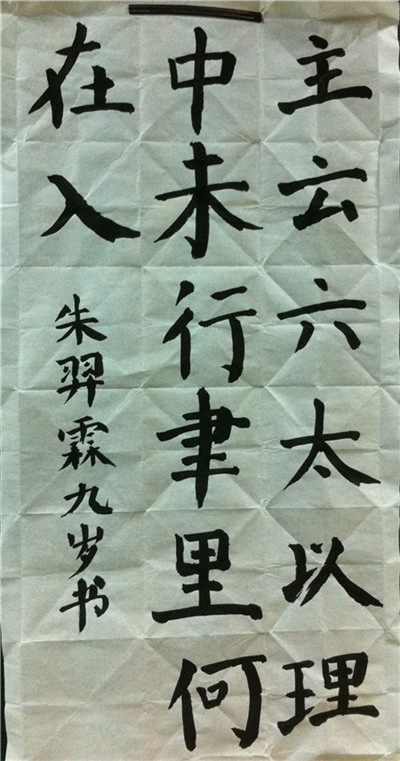 主云六太以理
中未行聿里何
在入
朱羿霖九岁书